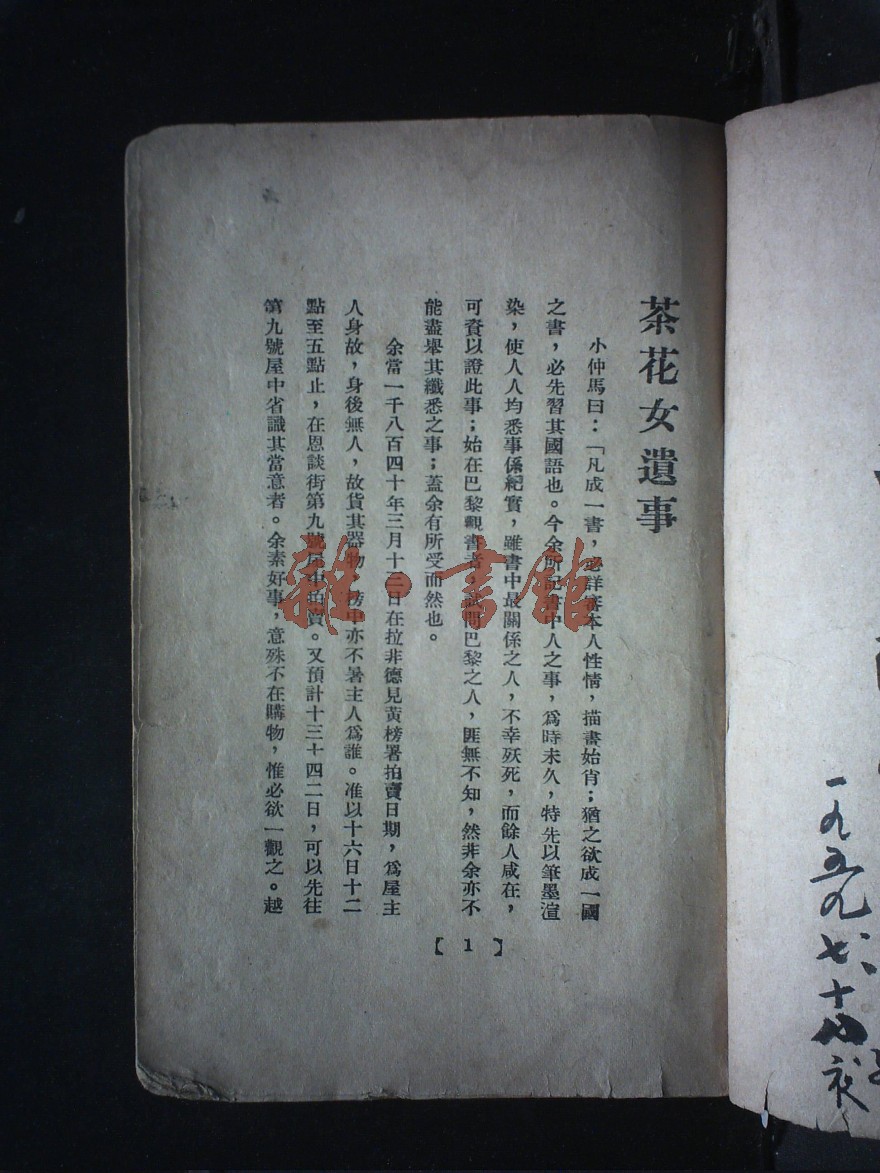 茶花女遺事
小仲馬曰：「凡成一書，必詳審本人性情，描畫始肖；猶之欲成一國
之書，必先習其國語也。今余所記書中人之事，爲時未久，特先以筆墨渲
染，使人人均悉事係紀實，雖書中最關係之人，不幸殀死，而餘人咸在，
可資以證此事；始在巴黎觀書者，試問巴黎之人，匪無不知，然非余亦不
能盡舉其纖悉之事；蓋余有所受而然也。
余當一千八百四十年三月十三日在拉非德見黃榜署拍賣日期，爲屋主
人身故，身後無人，故貨其器物，榜中亦不署主人爲誰。准以十六日十二
點至五點止，在恩談街第九號屋中拍賣。又預計十三十四二日，可以先往
第九號屋中省識其當意者。余素好事，意殊不在購物，惟必欲一觀之。越
【1】
雜·書館
一九五九、七、十八